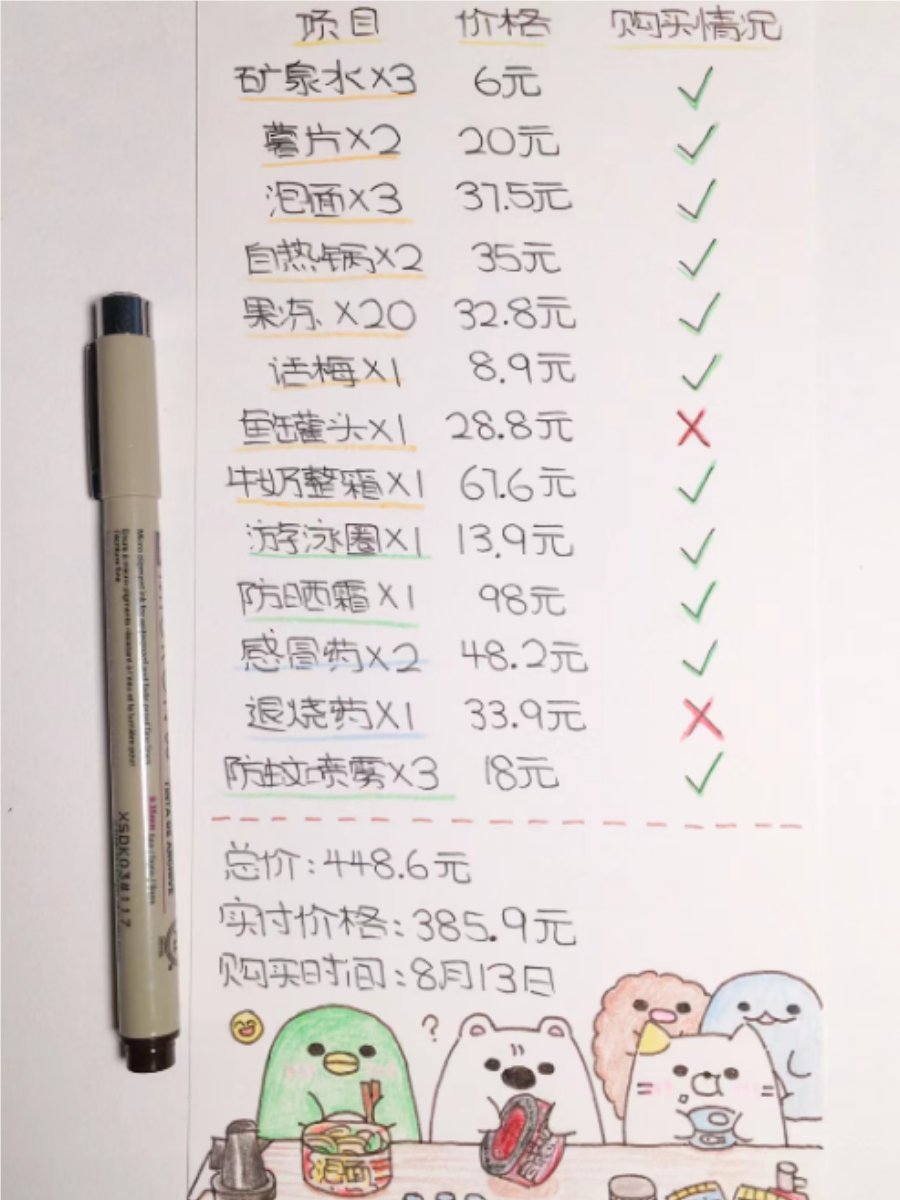 项目 价格 购买情况
矿泉水×3 6元 ✓
薯片×2 20元 ✓
泡面×3 37.5元 ✓
自热锅×2 35元 ✓
果冻×20 32.8元 ✓
话梅×1 8.9元 ✓
鱼罐头×1 28.8元 ×
牛奶整箱×1 67.6元 ✓
游泳圈×1 13.9元 ✓
防晒霜×1 98元 ✓
感冒药×2 48.2元 ✓
退烧药×1 33.9元 ×
防蚊喷雾×3 18元 ✓
总价:448.6元
实付价格:385.9元
购买时间:8月13日
?
泡面
XSDK03#117